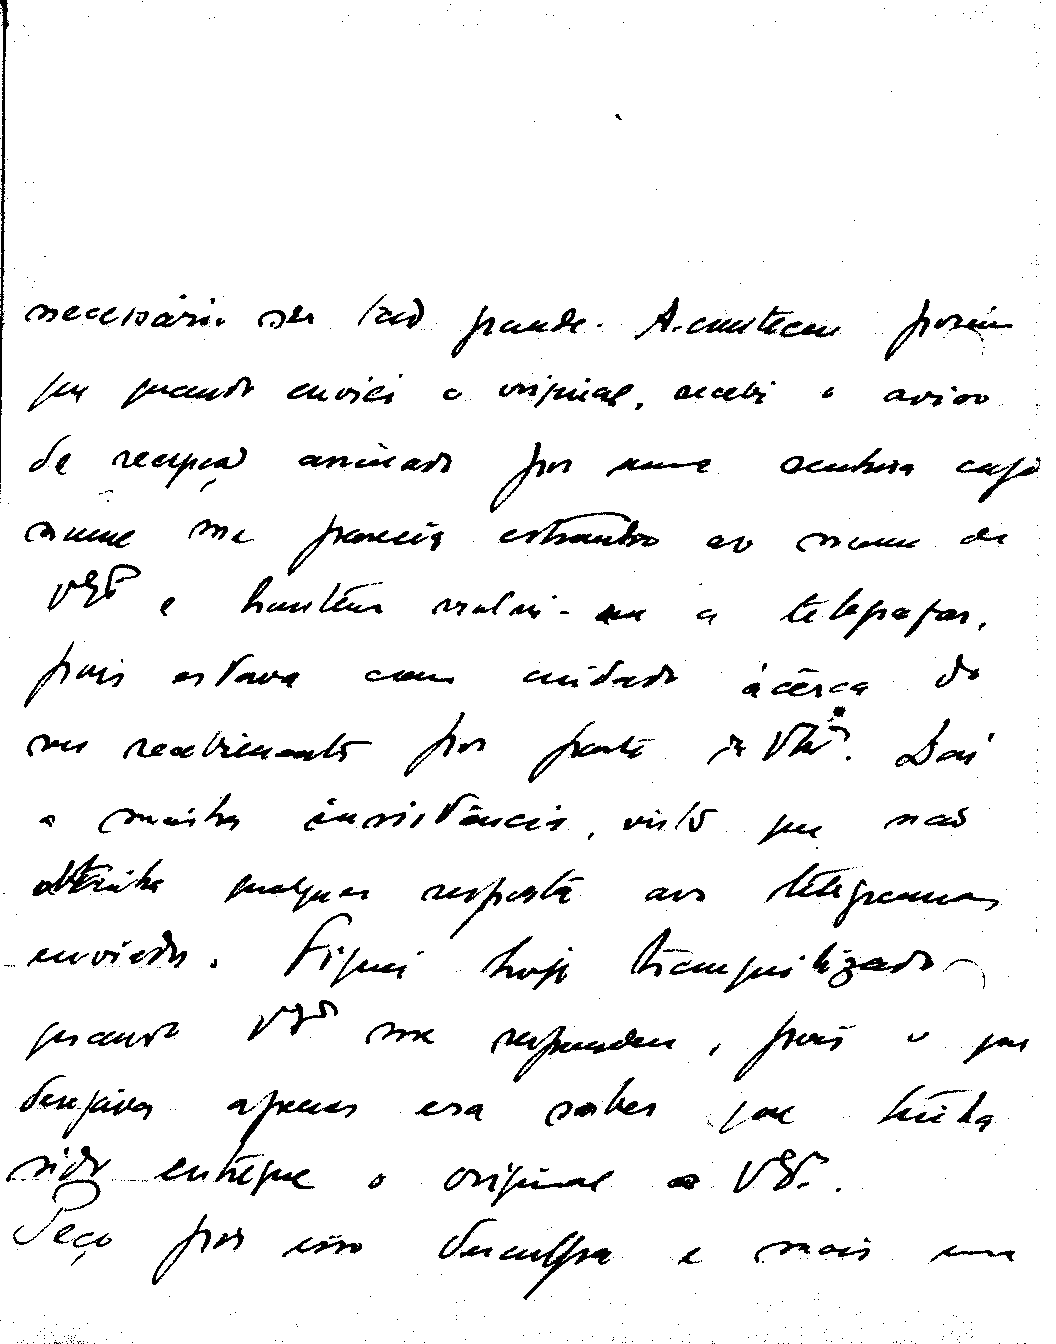 necessário ser tão grande. Aconteceu porém
que quando enviei o original, recebi o aviso
de recepção assinado por uma senhora cujo
nome me parecia estranho ao nome de
VEx.ª e hontem resolvi-me a telegrafar,
pois estava com cuidado ácêrca do
seu recebimento por parte de VEx.ª. Daí
a minha insistência, visto que não
obtinha qualquer resposta aos telegramas
enviados. Fiquei hoje tranquilizado
quando VEx.ª me respondeu, pois o que
desejava apenas era saber que tinha
sido entregue o original a VEx.ª.
Peço por isso desculpa e mais uma